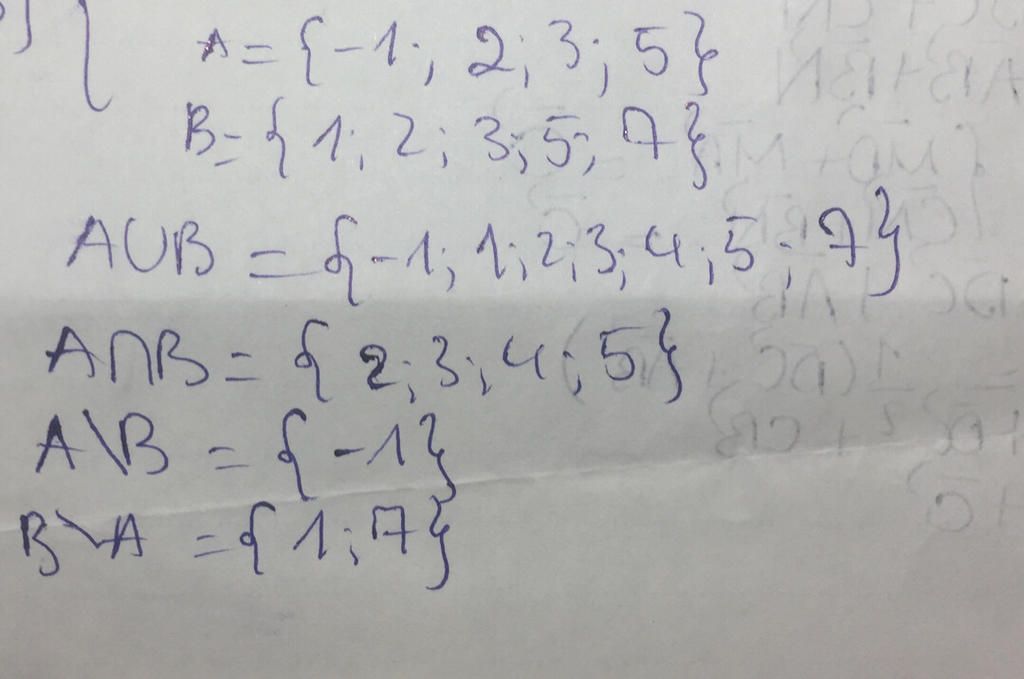 A = {-1; 2; 3; 5}
B = {1; 2; 3; 5; 7}
A∪B = {-1; 1; 2; 3; 4; 5; 7}
A∩B = {2; 3; 4; 5}
A\B = {-1}
B\A = {1; 7}